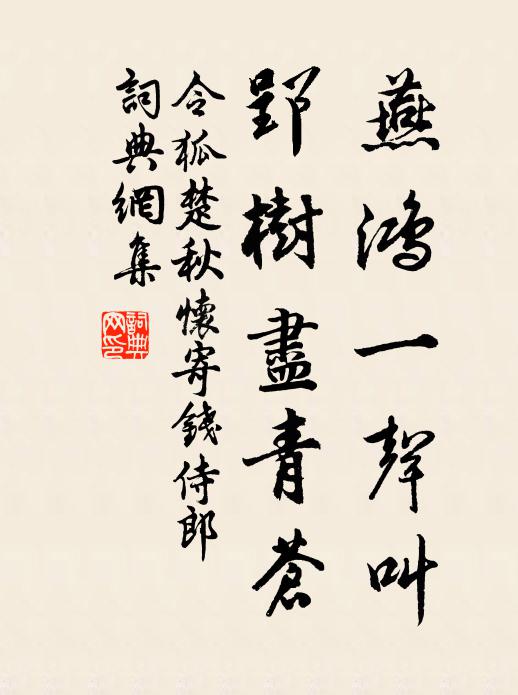 燕鴻一聲叫
郢樹盡青蒼
令狐楚秋懷寄錢侍郎
詞典網集
詞典网印